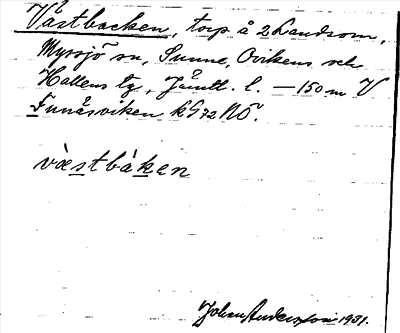 Västbacken, torp å 2 Landsom,
Myssjö sn, Sunne, Ovikens och
Hallens tg, Jämtl. l. — 150 m V
Funäsviken kG72NÖ.
västbàken
Johan Anderson 1931.